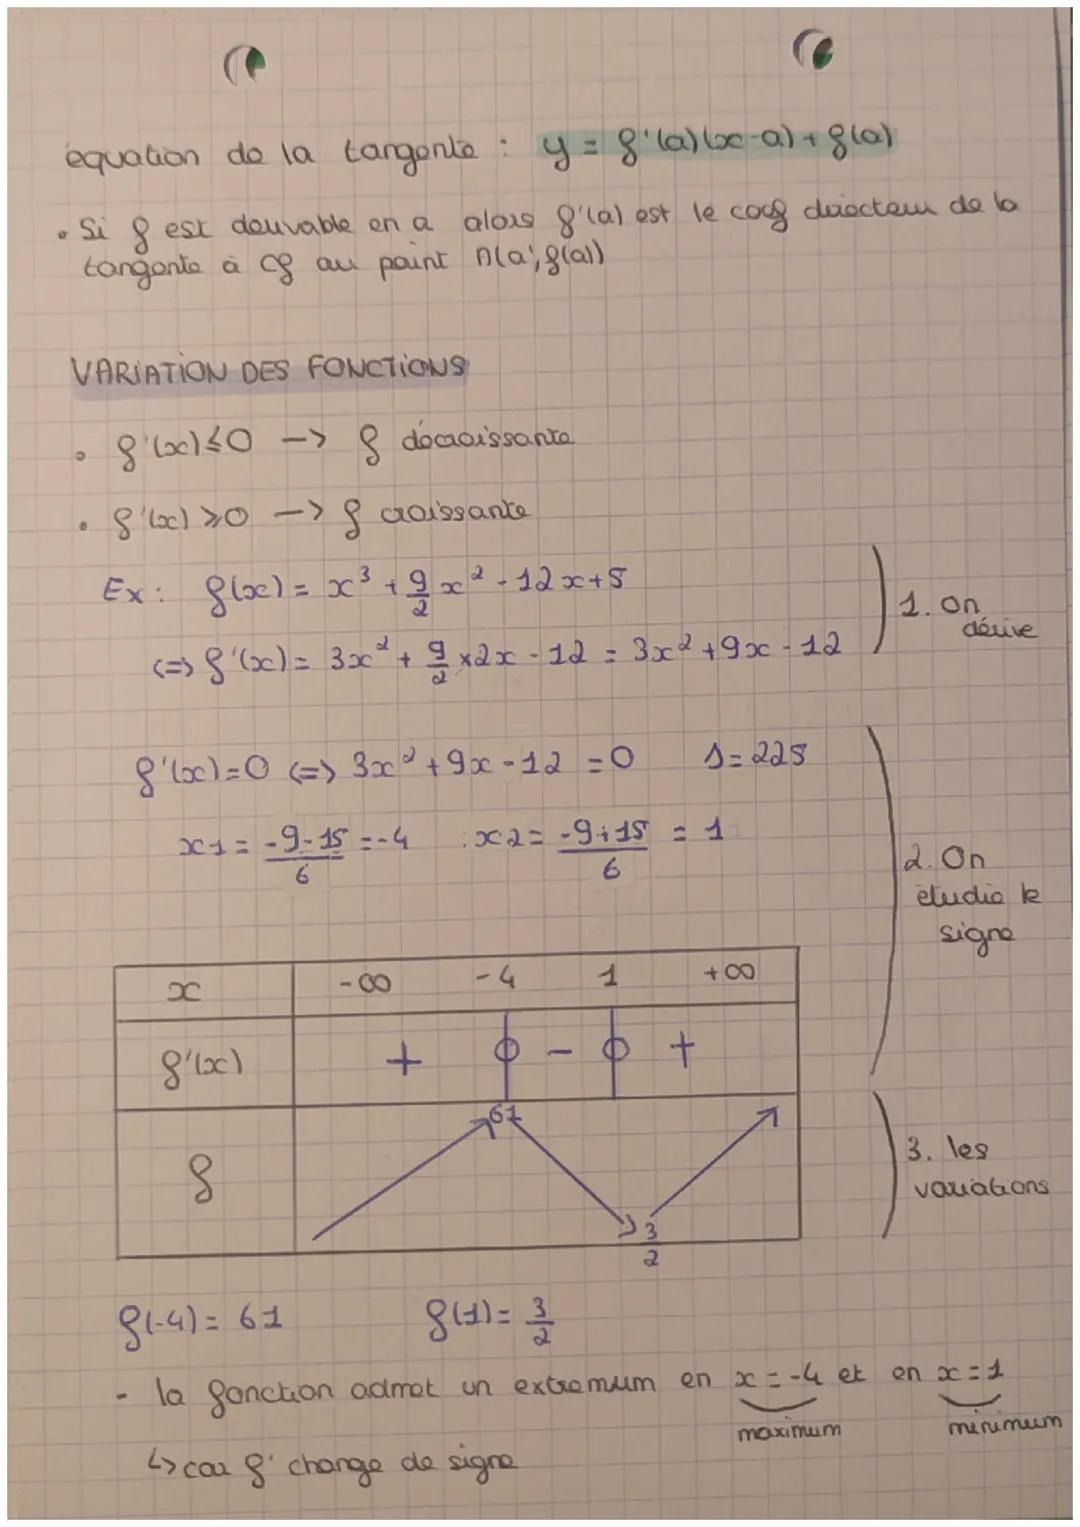 équation de la tangente : y = f'(a)(x-a) + f(a)
• Si f est dérivable en a alors f'(a) est le coef directeur de la
tangente à Cf au point A(a; f(a))
VARIATION DES FONCTIONS
• f'(x) ≤ 0 -> f décroissante
• f'(x) ≥ 0 -> f croissante
Ex : f(x) = x³ + 9/2 x² - 12x + 5
1. On dérive
<=> f'(x) = 3x² + 9/2 × 2x - 12 = 3x² + 9x - 12
f'(x) = 0 <=> 3x² + 9x - 12 = 0 Δ = 225
x1 = (-9-15)/6 = -4 x2 = (-9+15)/6 = 1
2. On
étudie le
signe
x -∞ -4 1 +∞
f'(x) + 0 - 0 +
f 61 3/2
3. les
variations
f(-4) = 61 f(1) = 3/2
- la fonction admet un extremum en x = -4 et en x = 1
maximum minimum
↳ car f' change de signe